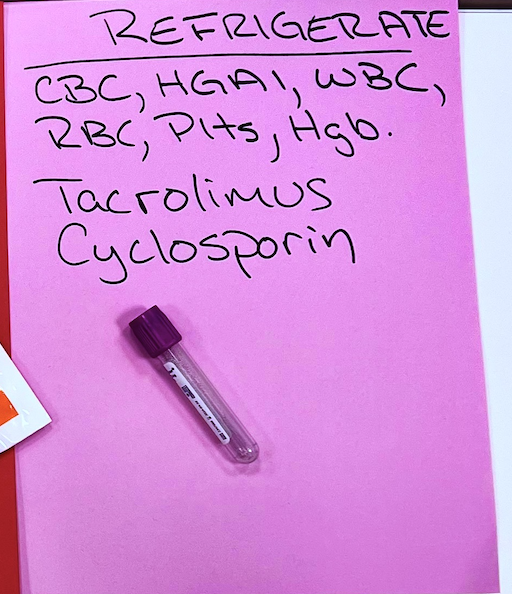 REFRIGERATE
CBC, HGA1, WBC,
RBC, Plts, Hgb.
Tacrolimus
Cyclosporin